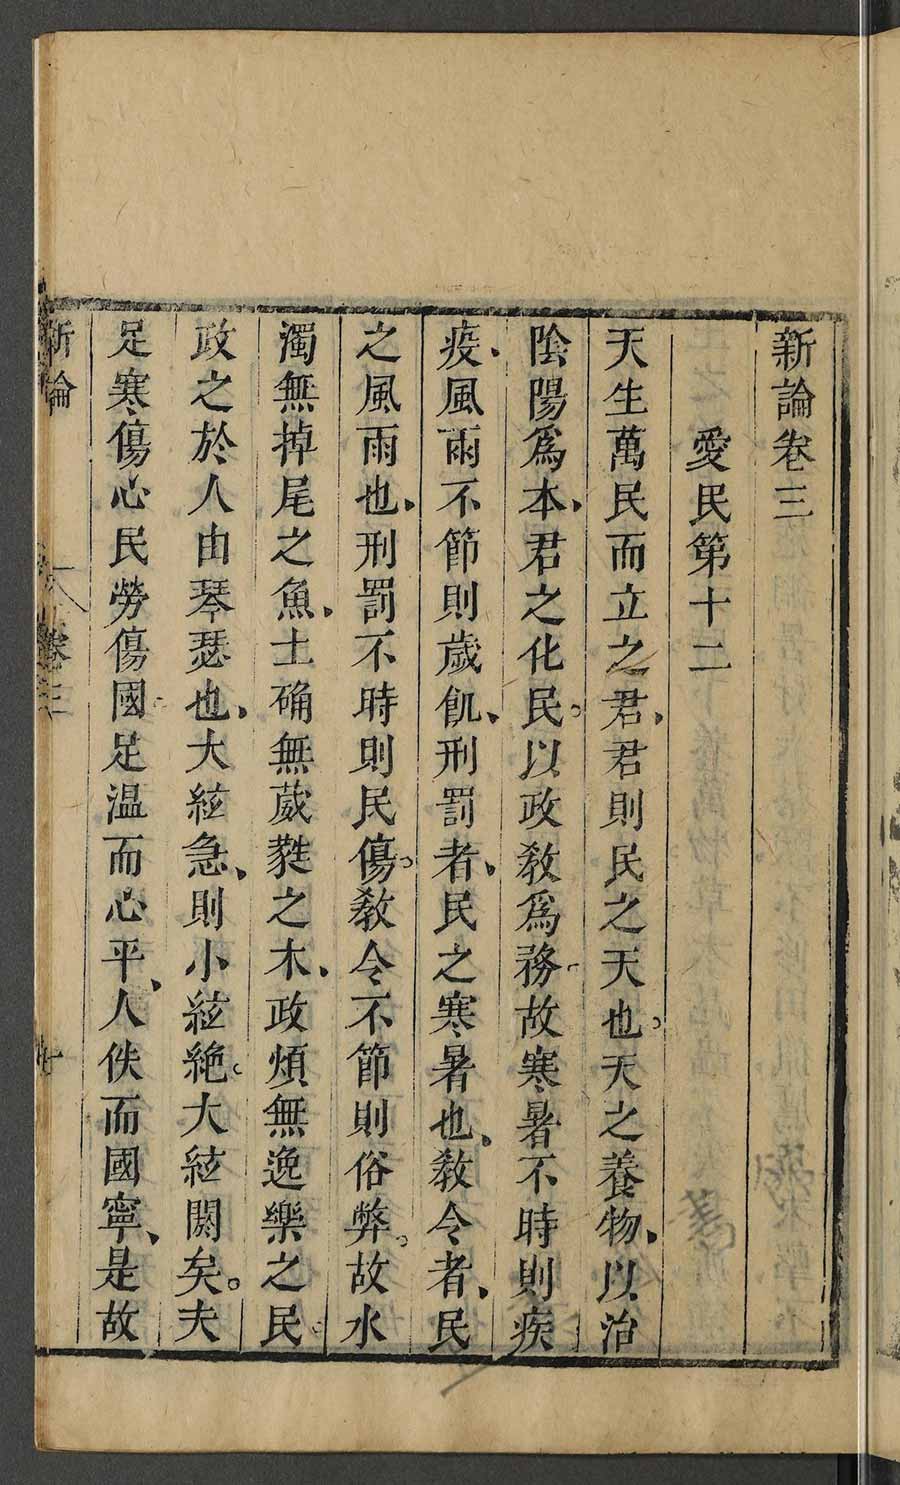 新論卷三
愛民第十二
天生萬民而立之君、君則民之天也。天之養物、以治
陰陽爲本、君之化民。以政敎爲務。故寒暑不時則疾
疫、風雨不節則歲飢、刑罰者、民之寒暑也、敎令者、民
之風雨也、刑罰不時則民傷。敎令不節則俗弊。故水
濁無掉尾之魚、土确無葳蕤之木、政煩無逸樂之民。
政之於人由琴瑟也、大絃急、則小絃絶。大絃闕矣。夫
足寒傷心民勞傷國。足温而心平、人佚而國寧、是故
新論 卷三 一